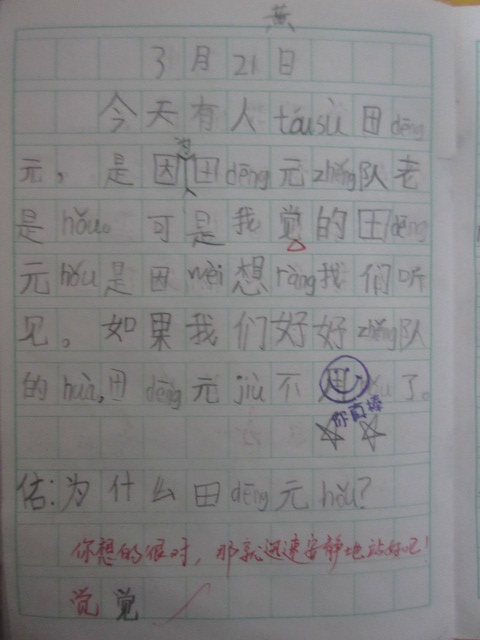 黄
3月21日
今天有人tóusù田dēng
元，是因为田dēng元zhěng队老
是hǒu。可是我觉的田dēng
元hǒu是因wèi想ràng我们听
见，如果我们好好zhěng队
的huà，田dēng元jiù不用hǒu了。
你真棒
估：为什么田dēng元hǒu？
你想的很对，那就迅速安静地站好吧！
觉 觉